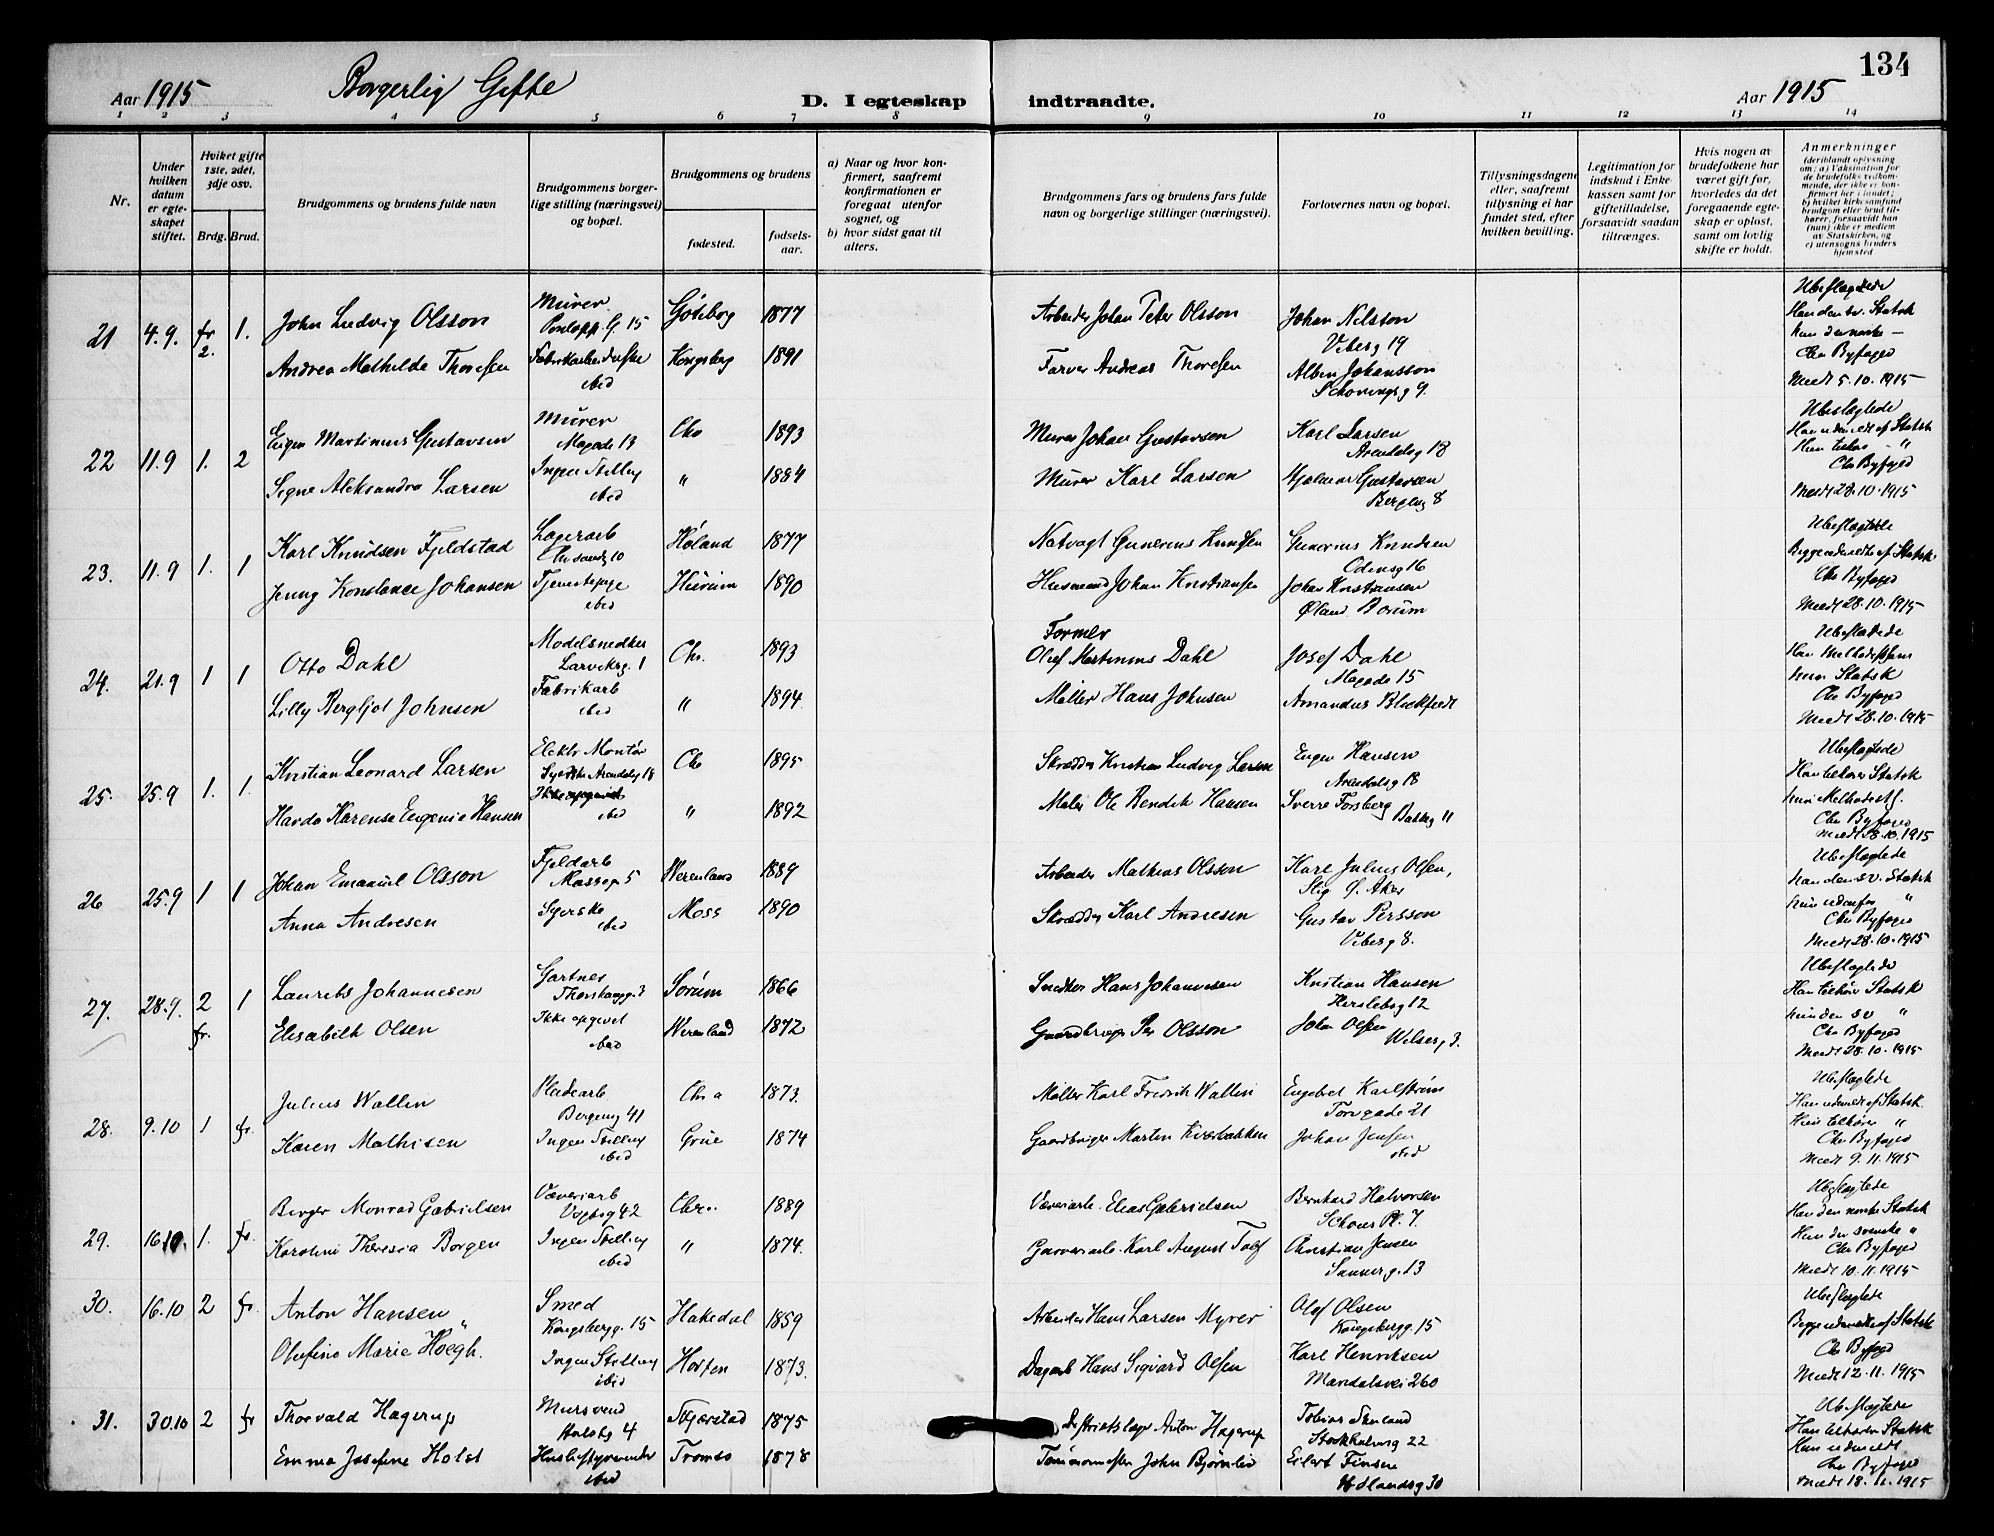 134
Aar 1915
Borgerlig Gifte
D. I egteskap indtraadte.
Aar 1915
1 2 3 4 5 6 7 8 9 10 11 12 13 14
Nr.
Under hvilken datum er egteskapet stiftet.
Hvilket gifte 1ste, 2det, 3dje osv.
Brdg. Brud.
Brudgommens og brudens fulde navn
Brudgommens borgerlige stilling (næringsvei) og bopæl.
Brudgommens og brudens
fødested.
fødselsaar.
a) Naar og hvor konfirmert, saafremt konfirmationen er foregaat utenfor sognet, og
b) hvor sidst gaat til alters.
Brudgommens fars og brudens fars fulde navn og borgerlige stillinger (næringsvei).
Forlovernes navn og bopæl.
Tillysningsdagene eller, saafremt tillysning ei har fundet sted, efter hvilken bevilling.
Legitimation for indskud i Enkekassen samt for giftetilladelse, forsaavidt saadan tiltrænges.
Hvis nogen av brudefolkene har været gift før, hvorledes da det foregaaende egteskap er opløst, samt om lovlig skifte er holdt.
Anmerkninger
(deriblandt oplysning om: a) Vaksination for de brudefolks vedkommende, der ikke er konfirmert her i landet; b) hvilket kirkesamfund brudgom eller brud tilhører, forsaavidt han (hun) ikke er medlem av Statskirken, og c) utensogns bruders hjemsted
21 4.9. fr 2. 1.
John Ludvig Olsson
Murer
Göteborg 1877
Arbeider Johan Peter Olsson
Johan Nilsson
Viberg 19
Andrea Mathilde Thoresen
ibid
Kongsberg 1891
Farver Andreas Thoresen
Albin Johansson
Schovengsg 9.
Ubeslægtede
Han den sv. Statsk
hun den norske —
Chr Byfoged
Meedt 5.10.1915
22 11.9 1. 2
Eugen Martinius Gustavsen
Murer
Chr 1893
Murer Johan Gustavsen
Karl Larsen
Arendalsg 18
Signe Aleksandra Larsen
Ingen Stilling
ibid
" 1884
Murer Karl Larsen
Hjalmar Gustavsen
Bergensg 8
Ubeslægtede
Han udmeldt af Statsk
Chr Byfoged
Meedt 28.10.1915
23. 11.9 1. 1
Karl Knudsen Fjeldstad
Lagerarb
Høland 1877
Natvagt Gunerius Knudsen
Gunerius Knudsen
Odensg 16
Jenny Konstance Johansen
Tjenestepige
ibid
Hurum 1890
Husmand Johan Kristiansen
Johan Kristiansen
Øland Borum
Ubeslægtede
Begge udmeldte af Statsk
Chr Byfoged
Meedt 28.10.1915
24. 21.9 1 1
Otto Dahl
Modelsnedker
Larviksg. 1
Chr. 1893
Former
Olaf Martinius Dahl
Josef Dahl
Lilly Bergljot Johnsen
Fabrikarb
ibid
" 1894
Møller Hans Johnsen
Amandus Blickfeldt
Ubeslægtede
hun Statsk
Chr Byfoged
Meedt 28.10.1915
25. 25.9 1. 1.
Kristian Leonard Larsen
Elektr Montør
Syerske Arendalsg 18
Chr 1895
Skrædder Kristian Ludvig Larsen
Eugen Hansen
Arendalsg 18
Harda Karense Eugenie Hansen
ibid
" 1892
Maler Ole Bendik Hansen
Sverre Forsberg
Bakkeg 11
Ubeslægtede
Han tilhører Statsk
hun Methodistf.
Chr Byfoged
Meedt 28.10.1915
26 25.9 1 1
Johan Emanuel Olsson
Fjeldarb
Mosseg. 5
Vermland 1889
Arbeider Mathias Olsson
Karl Julius Olsen,
Stig Ø. Aker
Anna Andresen
Syerske
ibid
Moss 1890
Skrædder Karl Andresen
Gustav Persson
Viberg 8.
Ubeslægtede
han den sv. Statsk
hun udenfor "
Chr Byfoged
Meedt 28.10.1915
27. 28.9. 2 fr. 1
Laurits Johannesen
Gartner
Sørum 1866
Snedker Hans Johannesen
Kristian Hansen
Herslebsg 12
Elisabeth Olsen
Ikke opgivet
ibid
Vermland 1872
Gaardbruger Per Olsson
Johan Olsen
Welserg 3.
Ubeslægtede
Han tilhører Statsk
hun den sv "
Chr Byfoged
Meedt 28.10.1915
28. 9.10 1 fr.
Julius Wallin
Pladearb
Bergensg 41
Chr a 1873.
Møller Karl Fredrik Wallin
Engebret Karlstrøm
Torvgade 21
Karen Mathisen
Ingen Stilling
ibid
Grue 1874
Gaardbruger Martin Kverbakken
Johan Jensen
ibid
Ubeslægtede
Han udmeldt af Statsk.
Hun tilhører "
Chr Byfoged
Meedt 9.11.1915
29. 16.10. 1. fr.
Birger Monrad Gabrielsen
Væveriarb
Vogtsg 42
Chra. 1889
Væveriarb. Elias Gabrielsen
Bernhard Halvorsen
Schous Pl. 7.
Karoline Theresia Borgen
Ingen Stilling
ibid
" 1874.
Garveriarb. Karl August Tolf
Christian Jensen
Sannerg. 13
Ubeslægtede
Han den norske Statsk
Hun den svenske "
Chr Byfoged
Meedt 10.11.1915
30. 16.10 2 fr.
Anton Hansen
Smed
Kongsbergg. 15
Hakedal 1859
Arbeider Hans Larsen Myrer
Olaf Olsen
Kongsbergg. 15
Olufine Marie Höegh.
Ingen Stilling
ibid
Horten 1873.
Dagarb Hans Sigvard Olsen
Karl Henriksen
Mandalsvei 260
Ubeslægtede
Begge udmeldte af Statsk
Chr Byfoged
Meedt 12.11.1915
31. 30.10 2 fr
Thorvald Hagerup
Mursvend
1875
Distriktslæge Anton Hagerup
Stockholmsg 22
Emma Josefine Holst
Husbestyrerinde
ibid
Tromsø 1878
Tømmermester John Bjørnlid
Eilert Finsen
30
Ubeslægtede
Han tilhører Statsk
Hun udmeldt
Chr Byfoged
Meedt 18.11.1915